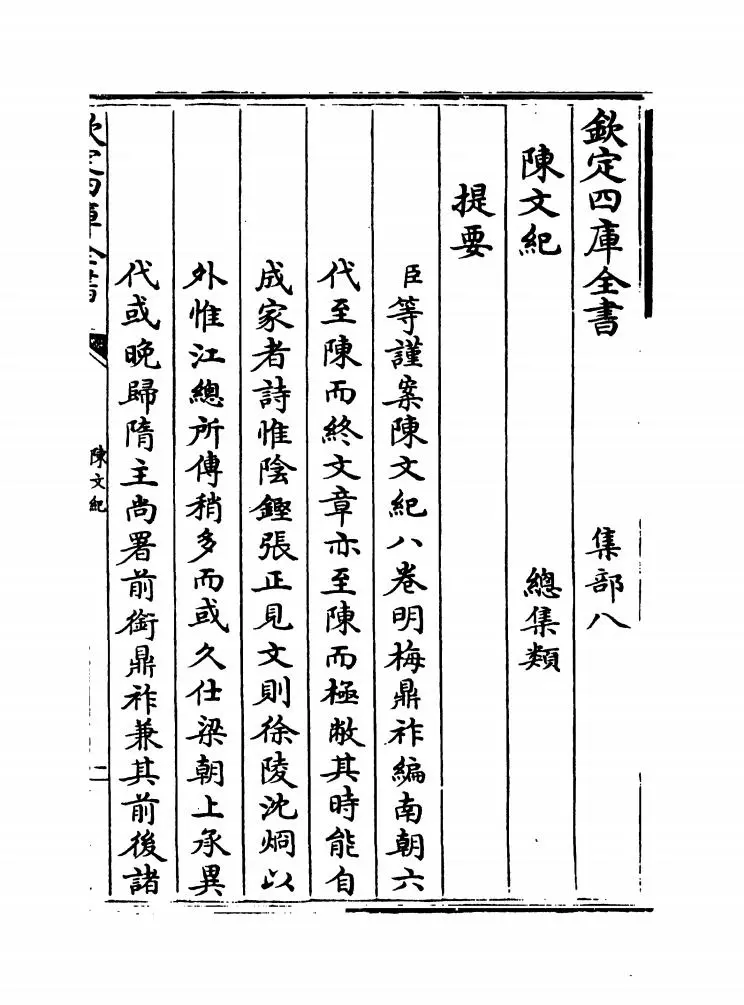 欽定四庫全書
集部八
陳文紀
總集類
提要
臣等謹案陳文紀八卷明梅鼎祚編南朝六
代至陳而終文章亦至陳而極敝其時能自
成家者詩惟陰鏗張正見文則徐陵沈烱以
外惟江總所傳稍多而或久仕梁朝上承異
代或晚歸隋主尚署前銜鼎祚兼其前後諸
欽定四庫全書
陳文紀
一